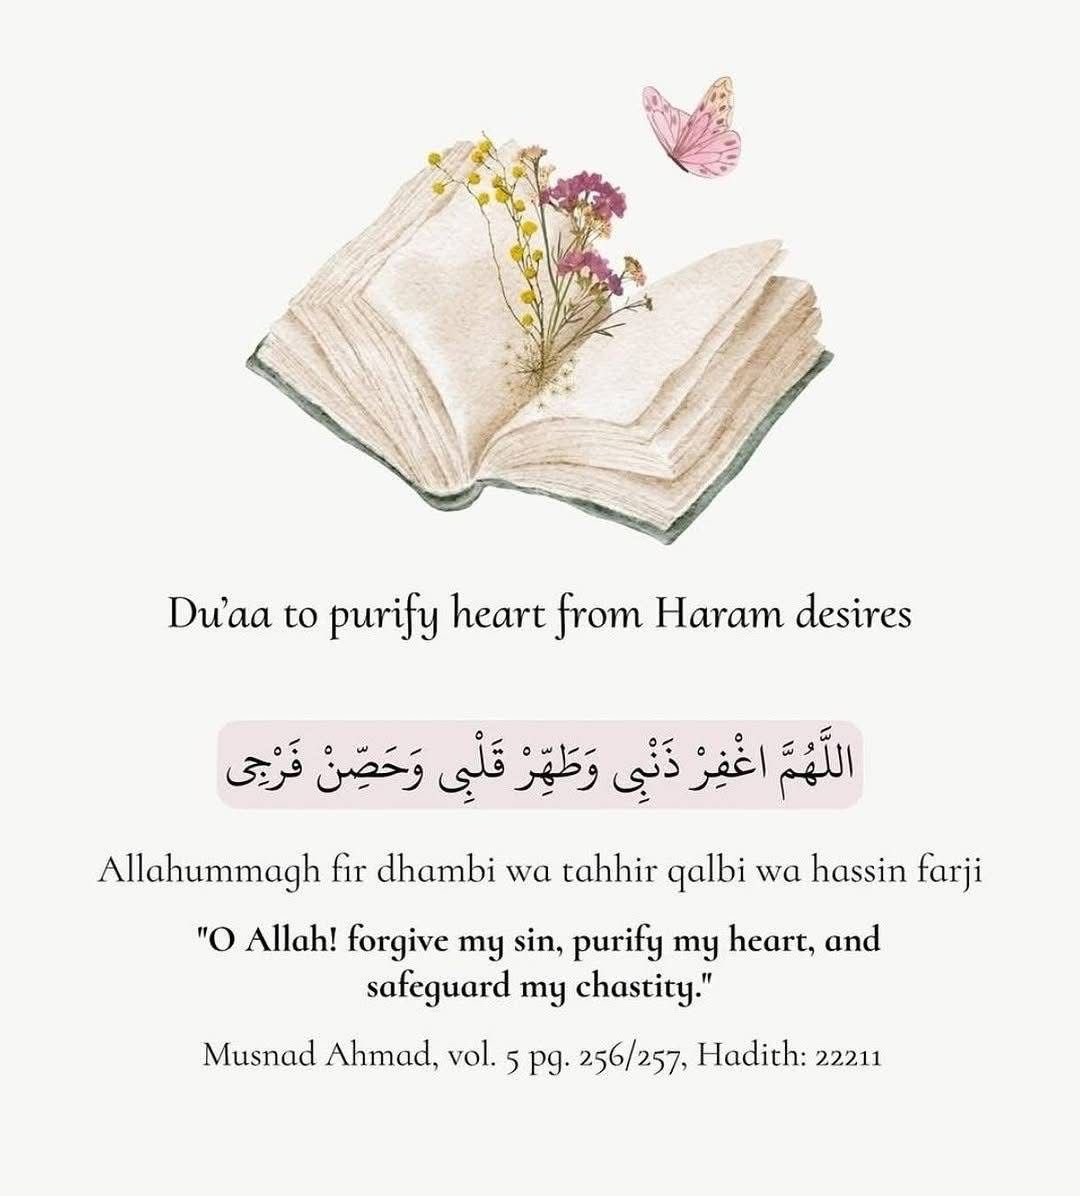 Du'aa to purify heart from Haram desires
اللَّهُمَّ اغْفِرْ ذَنْبِى وَطَهِّرْ قَلْبِى وَحَصِّنْ فَرْجِى
Allahummagh fir dhambi wa tahhir qalbi wa hassin farji
"O Allah! forgive my sin, purify my heart, and
safeguard my chastity."
Musnad Ahmad, vol. 5 pg. 256/257, Hadith: 22211